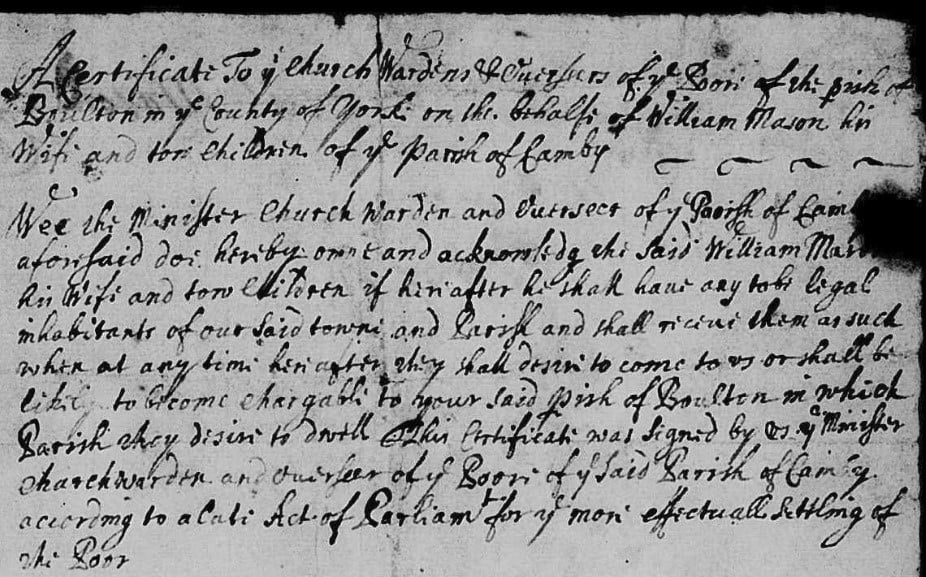 A Certificate To ye Church Wardens & Overseers of ye Poore of the prish of
Boulton in ye County of Yorke on the behalfe of William Mason his
Wife and tow Children of ye Parish of Camby
Wee the Minister Church warden and Overseer of ye Parish of Cam
aforesaid doe hereby owne and acknowledg the said William
his Wife and tow Children if hereafter he shall have any to be legal
inhabitants of our said towne and Parish and shall receue them as such
when at any time hereafter they shall desire to come to us or shall be
likely to become chargable to your said prish of Boulton in which
Parish they desire to dwell This Certificate was signed by us ye Minister
Churchwarden and Overseer of ye Poore of ye said Parish of Camby
according to a late Act of Parliamt for ye more effectuall settling of
the Poor